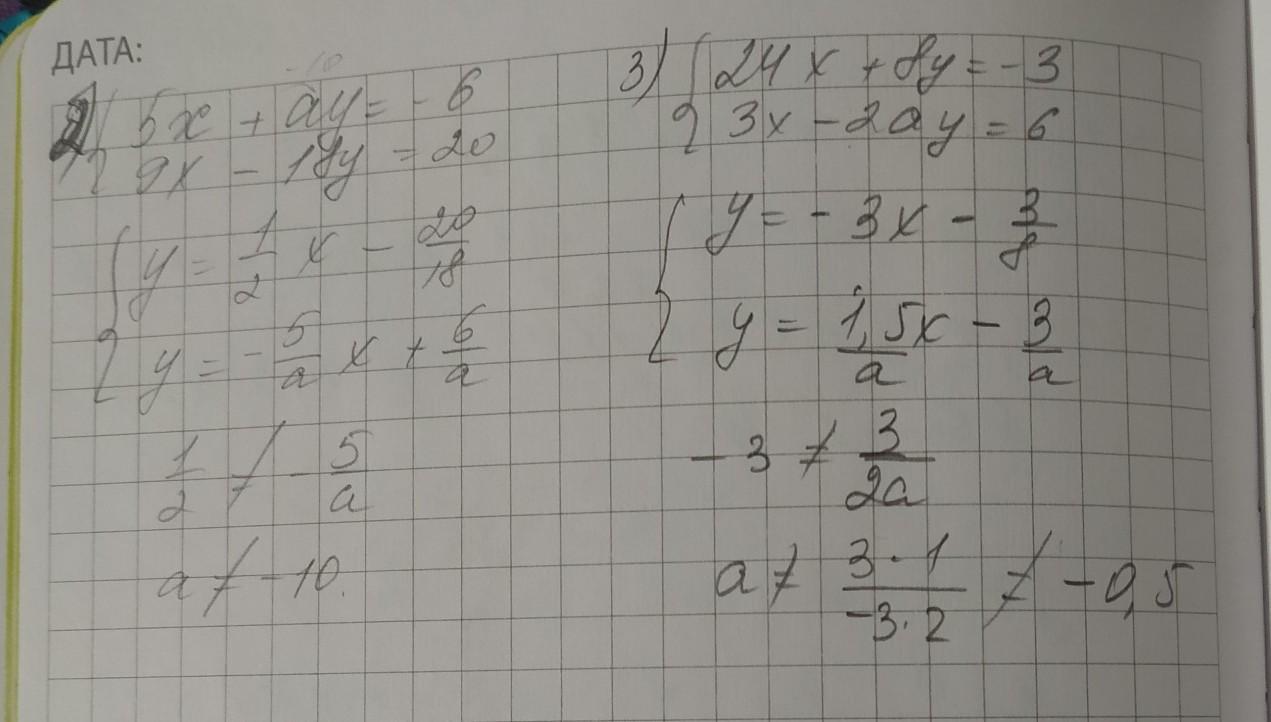 ДАТА:
-10
2) { 5x + ay = - 6
9x - 18y = 20
{ y = 1/2 x - 20/18
y = - 5/a x + 6/a
1/2 ≠ - 5/a
a ≠ -10.
3) { 24x + 8y = -3
3x - 2ay = 6
{ y = - 3x - 3/8
y = 1,5x/a - 3/a
- 3 ≠ 3/2a
a ≠ 3·1/-3·2 ≠ -0,5